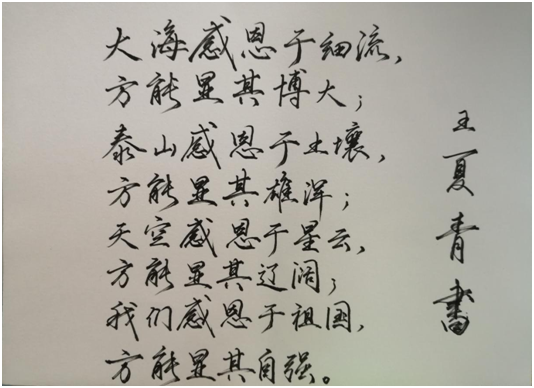 大海感恩于细流，
方能显其博大；
泰山感恩于土壤，
方能显其雄浑；
天空感恩于星云，
方能显其辽阔；
我们感恩于祖国，
方能显其自强。
王夏青书